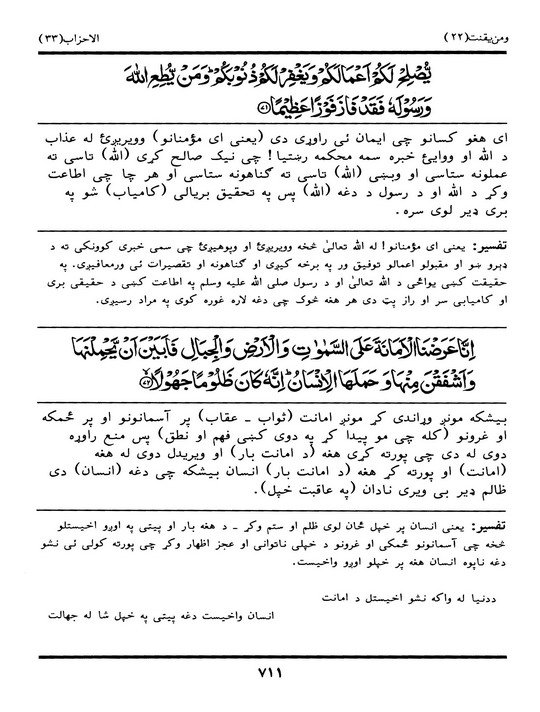 ومن يقنت(٢٢) الاحزاب(٣٣)
يُّصْلِحْ لَكُمْ اَعْمَالَكُمْ وَيَغْفِرْ لَكُمْ ذُنُوْبَكُمْ ؕ وَمَنْ يُّطِعِ اللّٰهَ
وَرَسُوْلَهٗ فَقَدْ فَازَ فَوْزًا عَظِيْمًا ﴿٧١﴾
ای هغو کسانو چی ایمان ئی راوړی دی (یعنی ای مؤمنانو) وویریږئ له عذاب
د الله او ووایئ خبره سمه محکمه رښتیا! چی نیک صالح کړی (الله) تاسی ته
عملونه ستاسی او وبښی (الله) تاسی ته گناهونه ستاسی او هر چا چی اطاعت
وکړ د الله او د رسول د دغه (الله) پس په تحقیق بریالی (کامیاب) شو په
بری ډیر لوی سره.
تفسیر: یعنی ای مؤمنانو! له الله تعالیٰ څخه وویریږئ او وپوهیږئ چی سمی خبری کوونکی ته د
ډېرو ښو او مقبولو اعمالو توفیق ور په برخه کیږی او گناهونه او تقصیرات ئی ورمعافیږی. په
حقیقت کښی یواځی د الله تعالیٰ او د رسول صلی الله علیه وسلم په اطاعت کښی د حقیقی بری
او کامیابی سر او راز پټ دی هر هغه څوک چی دغه لاره غوره کوی په مراد رسیږی.
اِنَّا عَرَضْنَا الْاَمَانَةَ عَلَى السَّمٰوٰتِ وَالْاَرْضِ وَالْجِبَالِ فَاَبَيْنَ اَنْ يَّحْمِلْنَهَا
وَاَشْفَقْنَ مِنْهَا وَحَمَلَهَا الْاِنْسَانُ ؕ اِنَّهٗ كَانَ ظَلُوْمًا جَهُوْلًا ﴿٧٢﴾
بیشکه مونږ وړاندی کړ مونږ امانت (ثواب ـ عقاب) پر آسمانونو او پر ځمکه
او غرونو (کله چی مو پیدا کړ په دوی کښی فهم او نطق) پس منع راوړه
دوی له دی چی پورته کړی هغه (د امانت بار) او ویریدل دوی له هغه
(امانت) او پورته کړ هغه (د امانت بار) انسان بیشکه چی دغه (انسان) دی
ظالم ډیر بی ویری نادان (په عاقبت خپل).
تفسیر: یعنی انسان پر خپل ځان لوی ظلم او ستم وکړ ـ د هغه بار او پیټی په اوږو اخیستلو
څخه چی آسمانونو ځمکی او غرونو د خپلی ناتوانی او عجز اظهار وکړ چی پورته کولی ئی نشو
دغه ناپوه انسان هغه پر خپلو اوږو واخیست.
ددنیا له واکه نشو اخیستل د امانت
انسان واخیست دغه پیټی په خپل شا له جهالت
٧١١